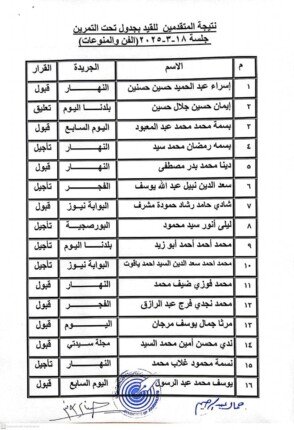 نتيجة المتقدمين للقيد بجدول تحت التمرين
جلسة ١٨-٣-٢٠٢٥ (الفن والمنوعات)
م الاسم الجريدة القرار
١ إسراء عبد الحميد حسين حسنين النهار قبول
٢ إيمان حسين جلال حسين بلدنا اليوم تعليق
٣ بسمة محمد محمد عبد المعبود اليوم السابع قبول
٤ بسمه رمضان محمد سيد النهار تأجيل
٥ دينا محمد بدر مصطفى النهار قبول
٦ سعد الدين نبيل عبد الله يوسف الفجر تأجيل
٧ شادي حامد رشاد حمودة مشرف البوابة نيوز قبول
٨ ليلى أنور سيد محمود البورصجية تأجيل
٩ محمد أحمد أحمد أبو زيد بلدنا اليوم تأجيل
١٠ محمد احمد سعد الدين السيد احمد ياقوت البوابة نيوز تأجيل
١١ محمد فوزي ضيف محمد النهار قبول
١٢ محمد نجدي فرج عبد الرازق الفجر قبول
١٣ مرثا جمال يوسف مرجان اليوم قبول
١٤ ندي محسن أمين محمد السيد مجلة سيدتي قبول
١٥ نسمة محمود غلاب محمد النهار تأجيل
١٦ يوسف محمد عبد الرسول اليوم السابع قبول